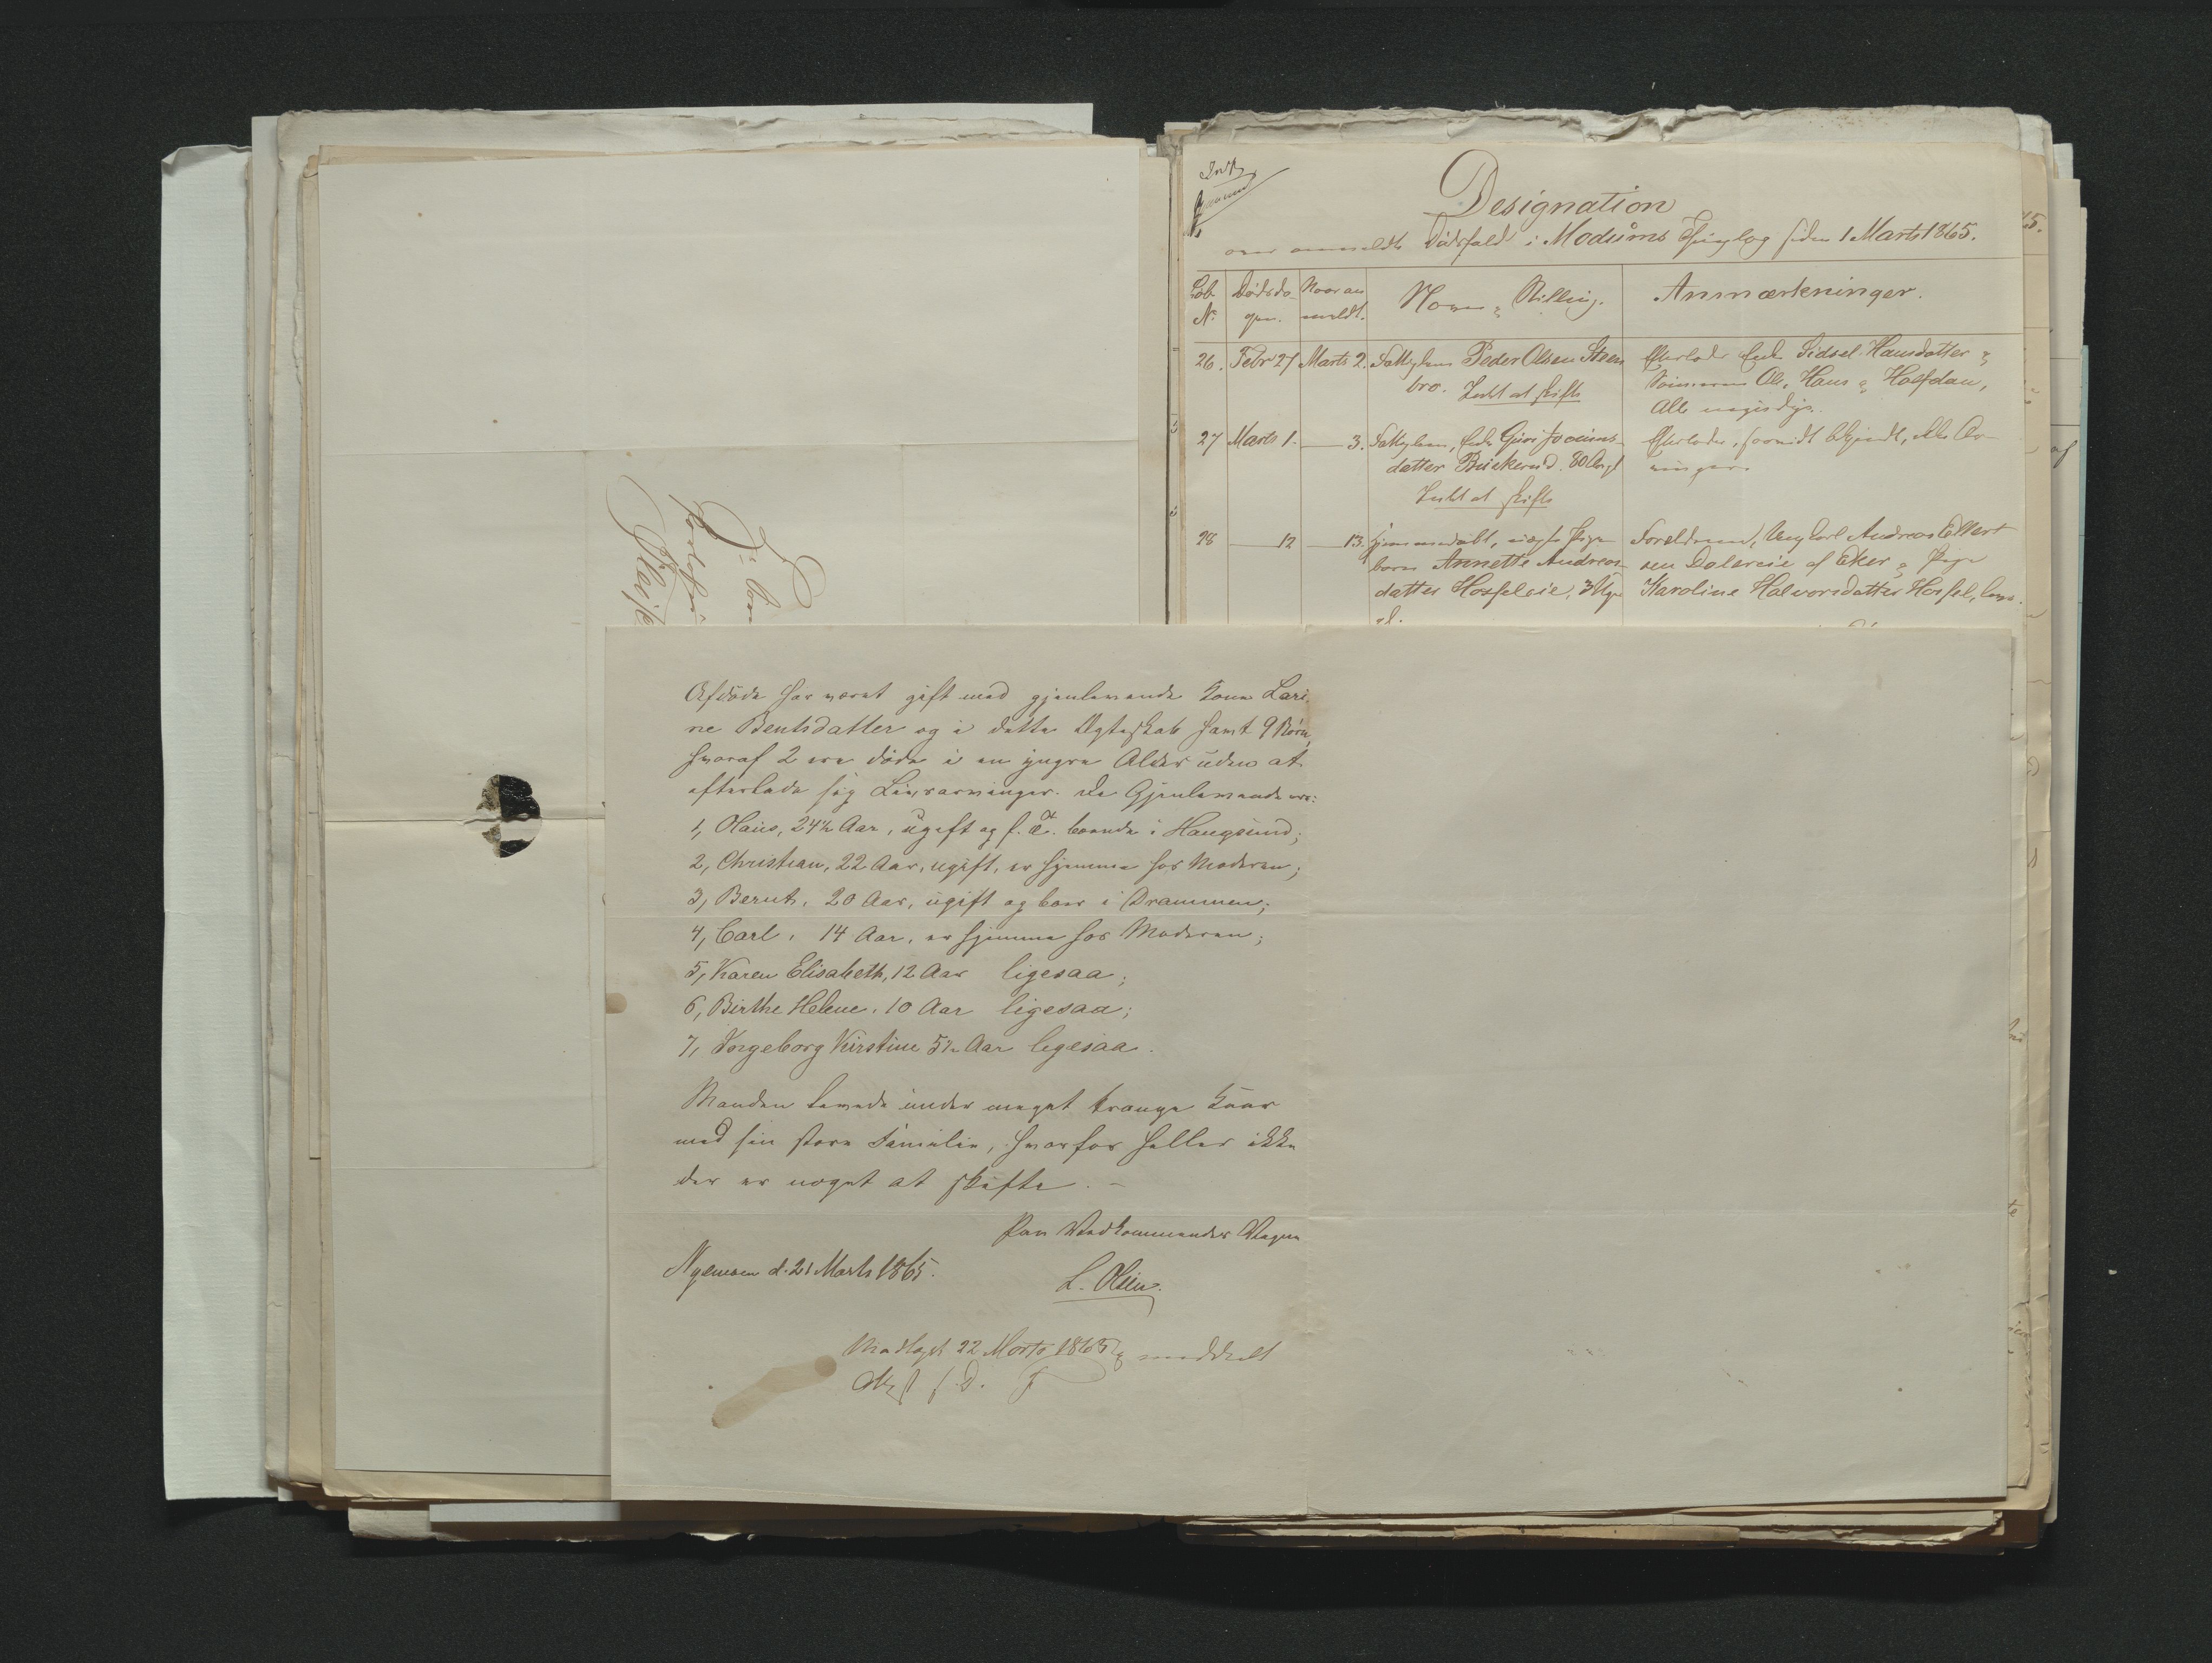 Designation
over anmeldte Dødsfald i Modums Thinglag siden 1 Marts 1865.
Løb. No.
Dødsda-
gen.
Naar an-
meldt.
Navn & Stilling.
Anmærkninger.
26. Febr 27 Marts 2. Fattiglem Peder Olsen Steen
bro. Intet at skifte
Efterlader Enke Sidsel Hansdatter &
Sønnerne Ole, Hans & Halfdan,
Alle myndige.
27 Marts 1. — 3. Fattiglem, Enke Guri
datter Buskerud. 80 Aar gl
Intet at skifte
Efterlader, saavidt bekjendt, ikke Ar-
vinger.
28 — 12 — 13. hjemmedøbt, uægte Pige-
barn Annette Andreas-
datter Hosfeleie, 3 Uger
gl.
Forældrene, Ungkarl Andreas Ellert
sen Dalereie af Eker & Pige
Karoline Halvorsdatter Hosfel,
Afdøde har været gift med gjenlevende Kone Lari-
ne Bentsdatter og i dette Ægteskab havt 9 Børn,
hvoraf 2 ere døde i en yngre Alder uden at
efterlade sig Livsarvinger. De Gjenlevende ere:
1, Olaus, 24½ Aar, ugift og f. T. boende i Haugsund;
2, Christian, 22 Aar, ugift, er hjemme hos Moderen;
3, Bernt, 20 Aar, ugift og boer i Drammen;
4, Carl, 14 Aar, er hjemme hos Moderen;
5, Karen Elisabeth, 12 Aar ligesaa;
6, Birthe Helene, 10 Aar ligesaa;
7, Ingeborg Kirstine 5½ Aar ligesaa.
Manden levede under meget trange Kaar
med sin store Familie, hvorfor heller ikke
der er noget at skifte. –
Paa Vedkommendes Vegne
Nymoen d. 21 Marts 1865.
L. Olsen.
Modtaget 22 Marts 1865 & meddelt
Attest s. D.